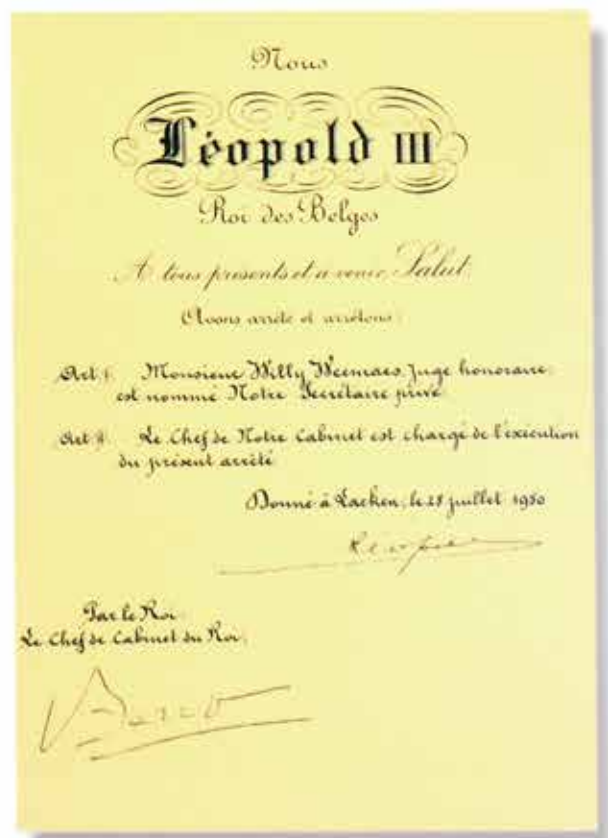 Nous
Léopold III
Roi des Belges
A tous présents et à venir, Salut.
Avons arrêté et arrêtons:
Art 1. Monsieur Willy Weemaes, Juge honoraire,
est nommé Notre Secrétaire privé.
Art 2. Le Chef de Notre Cabinet est chargé de l'exécution
du présent arrêté
Donné à Laeken, le 28 juillet 1950
Par le Roi:
Le Chef de Cabinet du Roi,